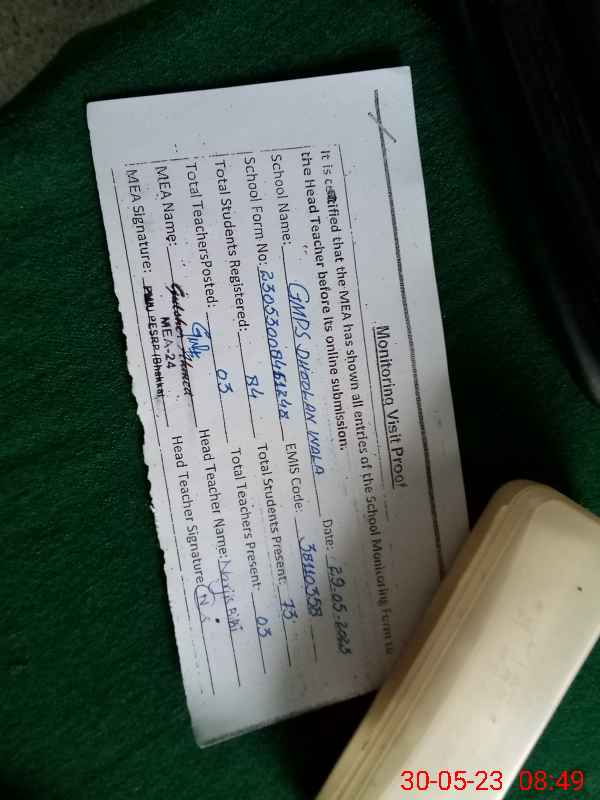 Monitoring Visit Proof
It is certified that the MEA has shown all entries of the School Monitoring Form to
the Head Teacher before its online submission. Date: 29.05.2023
School Name: GMPS DHOOLAN WALA EMIS Code: 38110358
School Form No: Total Students Present: 73
Total Students Registered: 84 Total Teachers Present: 03
Total TeachersPosted: 03 Head Teacher Name: Narjis Bibi
MEA Name: Head Teacher Signature
MEA-24
MEA Signature: PMIU PESRP (Bhakkar)
30-05-23 08:49